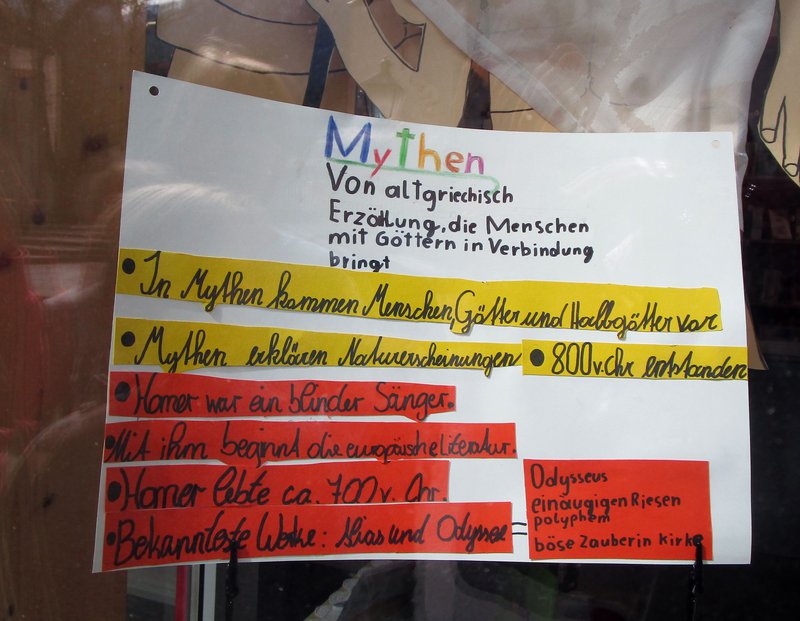 Mythen
Von altgriechisch
Erzählung, die Menschen
mit Göttern in Verbindung
bringt
• In Mythen kommen Menschen, Götter und Halbgötter vor
• Mythen erklären Naturerscheinungen
• 800 v. Chr entstanden
• Homer war ein blinder Sänger.
• Mit ihm beginnt die europäische Literatur.
• Homer lebte ca. 700 v. Chr.
• Bekannteste Werke: Ilias und Odyssee =
Odysseus
einäugigen Riesen
polyphem
böse Zauberin Kirke